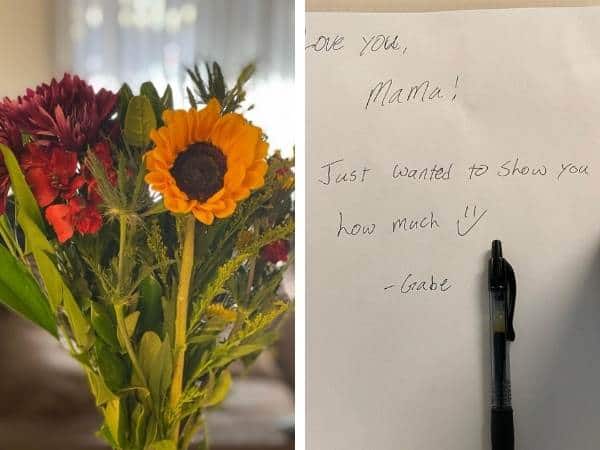 Love you,
Mama!
Just wanted to show you
how much
-Gabe